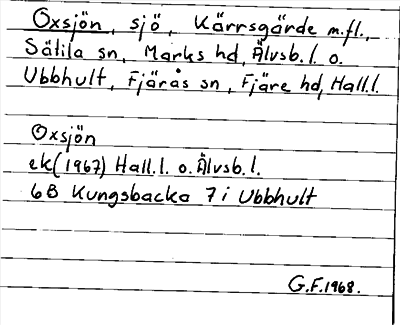 Oxsjön, sjö, Kärrsgärde m.fl.,
Sätila sn, Marks hd, Älvsb.l. o.
Ubbhult, Fjärås sn, Fjäre hd, Hall.l.
Oxsjön
ek (1967) Hall.l. o. Älvsb.l.
6B Kungsbacka 7i Ubbhult
G.F. 1968.